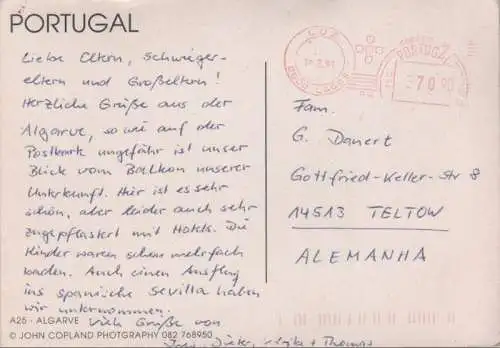 PORTUGAL
Liebe Eltern, Schwieger-
eltern und Großeltern!
Herzliche Grüße aus der
Algarve, so wie auf der
Postkarte ungefähr ist unser
Blick vom Balkon unserer
Unterkunft. Hier ist es sehr
schön, aber leider auch sehr
zugepflastert mit Hotels. Die
Kinder waren schon mehrfach
baden. Auch einen Ausflug
ins spanische Sevilla haben
wir unternommen.
Viele Grüße von
Dieter, + Thomas
A25 - ALGARVE
© JOHN COPLAND PHOTOGRAPHY 082 768950
LUZ
8600 LAGOS
PORTUGAL
70
Fam.
G. Danert
Gottfried-Keller-Str 8
14513 TELTOW
ALEMANHA